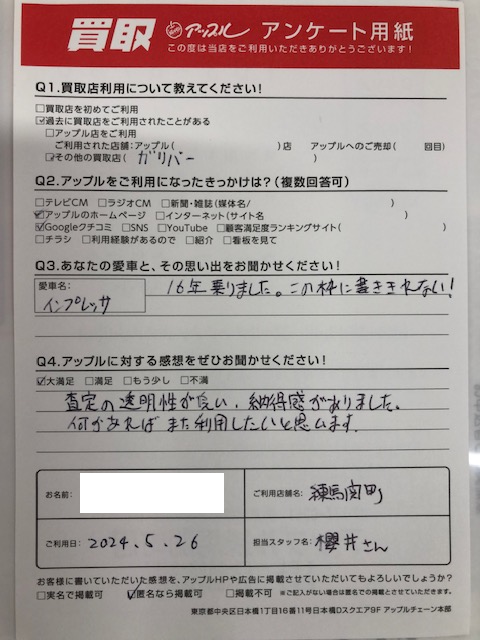 買取 アップル アンケート用紙
この度は当店をご利用いただきありがとうございます!
Q1.買取店利用について教えてください!
□買取店を初めてご利用
☑過去に買取店をご利用されたことがある
□アップル店をご利用
ご利用された店舗:アップル( )店 アップルへのご売却( 回目)
☑その他の買取店( ガリバー )
Q2.アップルをご利用になったきっかけは?(複数回答可)
□テレビCM □ラジオCM □新聞・雑誌(媒体名/ )
☑アップルのホームページ □インターネット(サイト名 )
☑Googleクチコミ □SNS □YouTube □顧客満足度ランキングサイト( )
□チラシ □利用経験があるので □紹介 □看板を見て
Q3.あなたの愛車と、その思い出をお聞かせください!
愛車名:
インプレッサ
16年乗りました。この枠に書ききれない!
Q4.アップルに対する感想をぜひお聞かせください!
☑大満足 □満足 □もう少し □不満
査定の透明性が良い、納得感がありました。
何かあればまた利用したいと思います。
お名前:
ご利用店舗名: 練馬関町
ご利用日: 2024.5.26
担当スタッフ名: 櫻井さん
お客様に書いていただいた感想を、アップルHPや広告に掲載させていただいてもよろしいでしょうか?
□実名で掲載可 ☑匿名なら掲載可 □掲載不可 ※ご記入がない場合は匿名での掲載とさせていただきます。
東京都中央区日本橋1丁目16番11号日本橋Dスクエア9F アップルチェーン本部